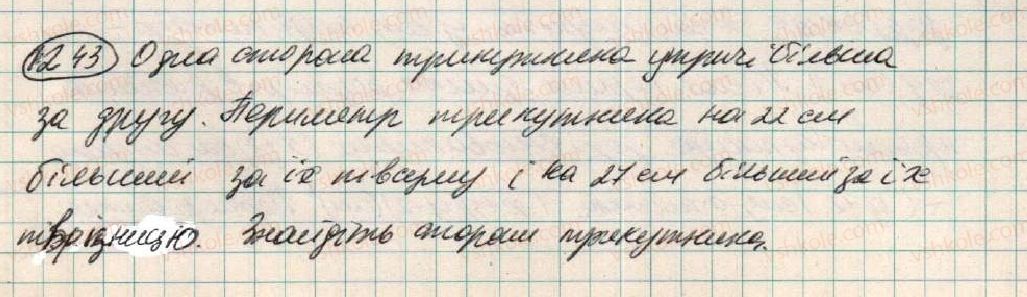 1243 Одна сторона трикутника утричі більша
за другу. Периметр трикутника на 22 см
більший за їх півсуму і на 27 см більший за їх
піврізницю. Знайдіть сторони трикутника.